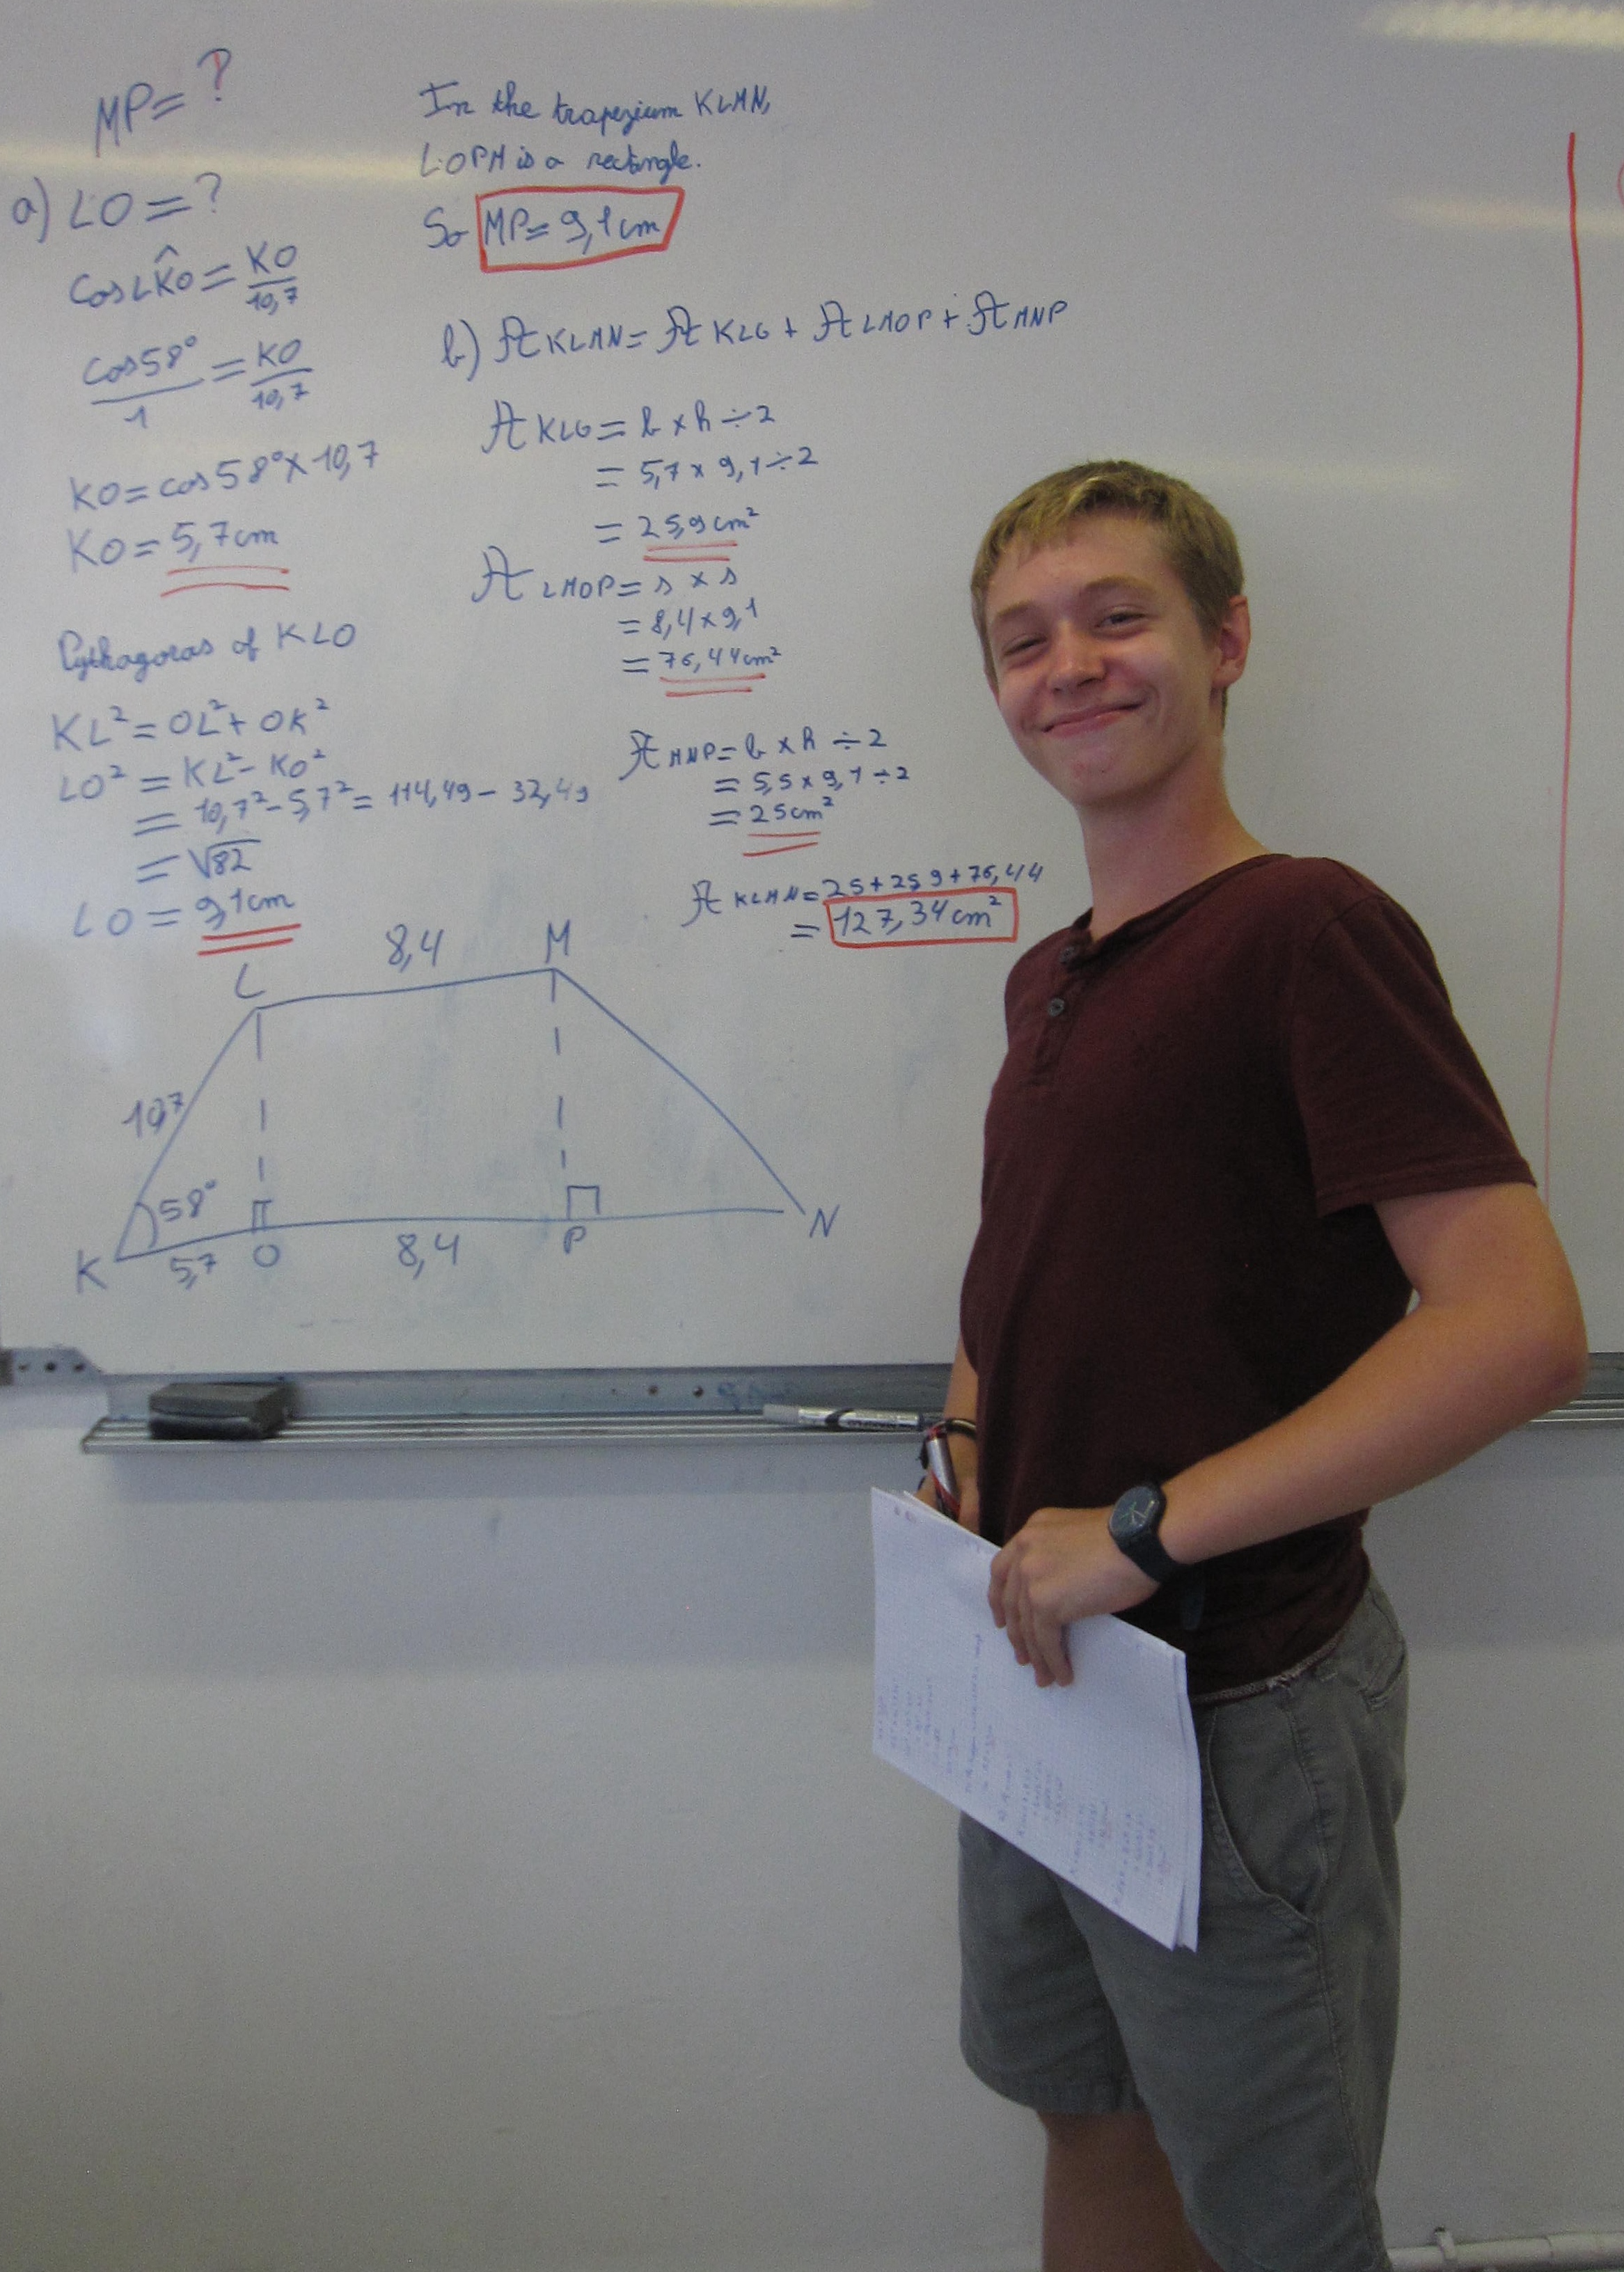 MP=?
a) LO=?
cos LK̂O = KO/10,7
cos58°/1 = KO/10,7
KO=cos58°×10,7
KO=5,7cm
Pythagoras of KLO
KL²=OL²+OK²
LO²=KL²-KO²
= 10,7²-5,7²= 114,49-32,49
= √82
LO = 9,1cm
In the trapezium KLMN,
LOPM is a rectangle.
So MP= 9,1cm
b) A KLMN= A KLO + A LMOP + A MNP
A KLO= b × h ÷ 2
= 5,7 × 9,1 ÷ 2
= 25,9cm²
A LMOP= s × s
= 8,4×9,1
= 76,44cm²
A MNP= b × h ÷ 2
= 5,5 × 9,1 ÷ 2
= 25cm²
A KLMN=25+25,9+76,44
= 127,34cm²
8,4
M
L
10,7
58°
K
5,7
O
8,4
P
N